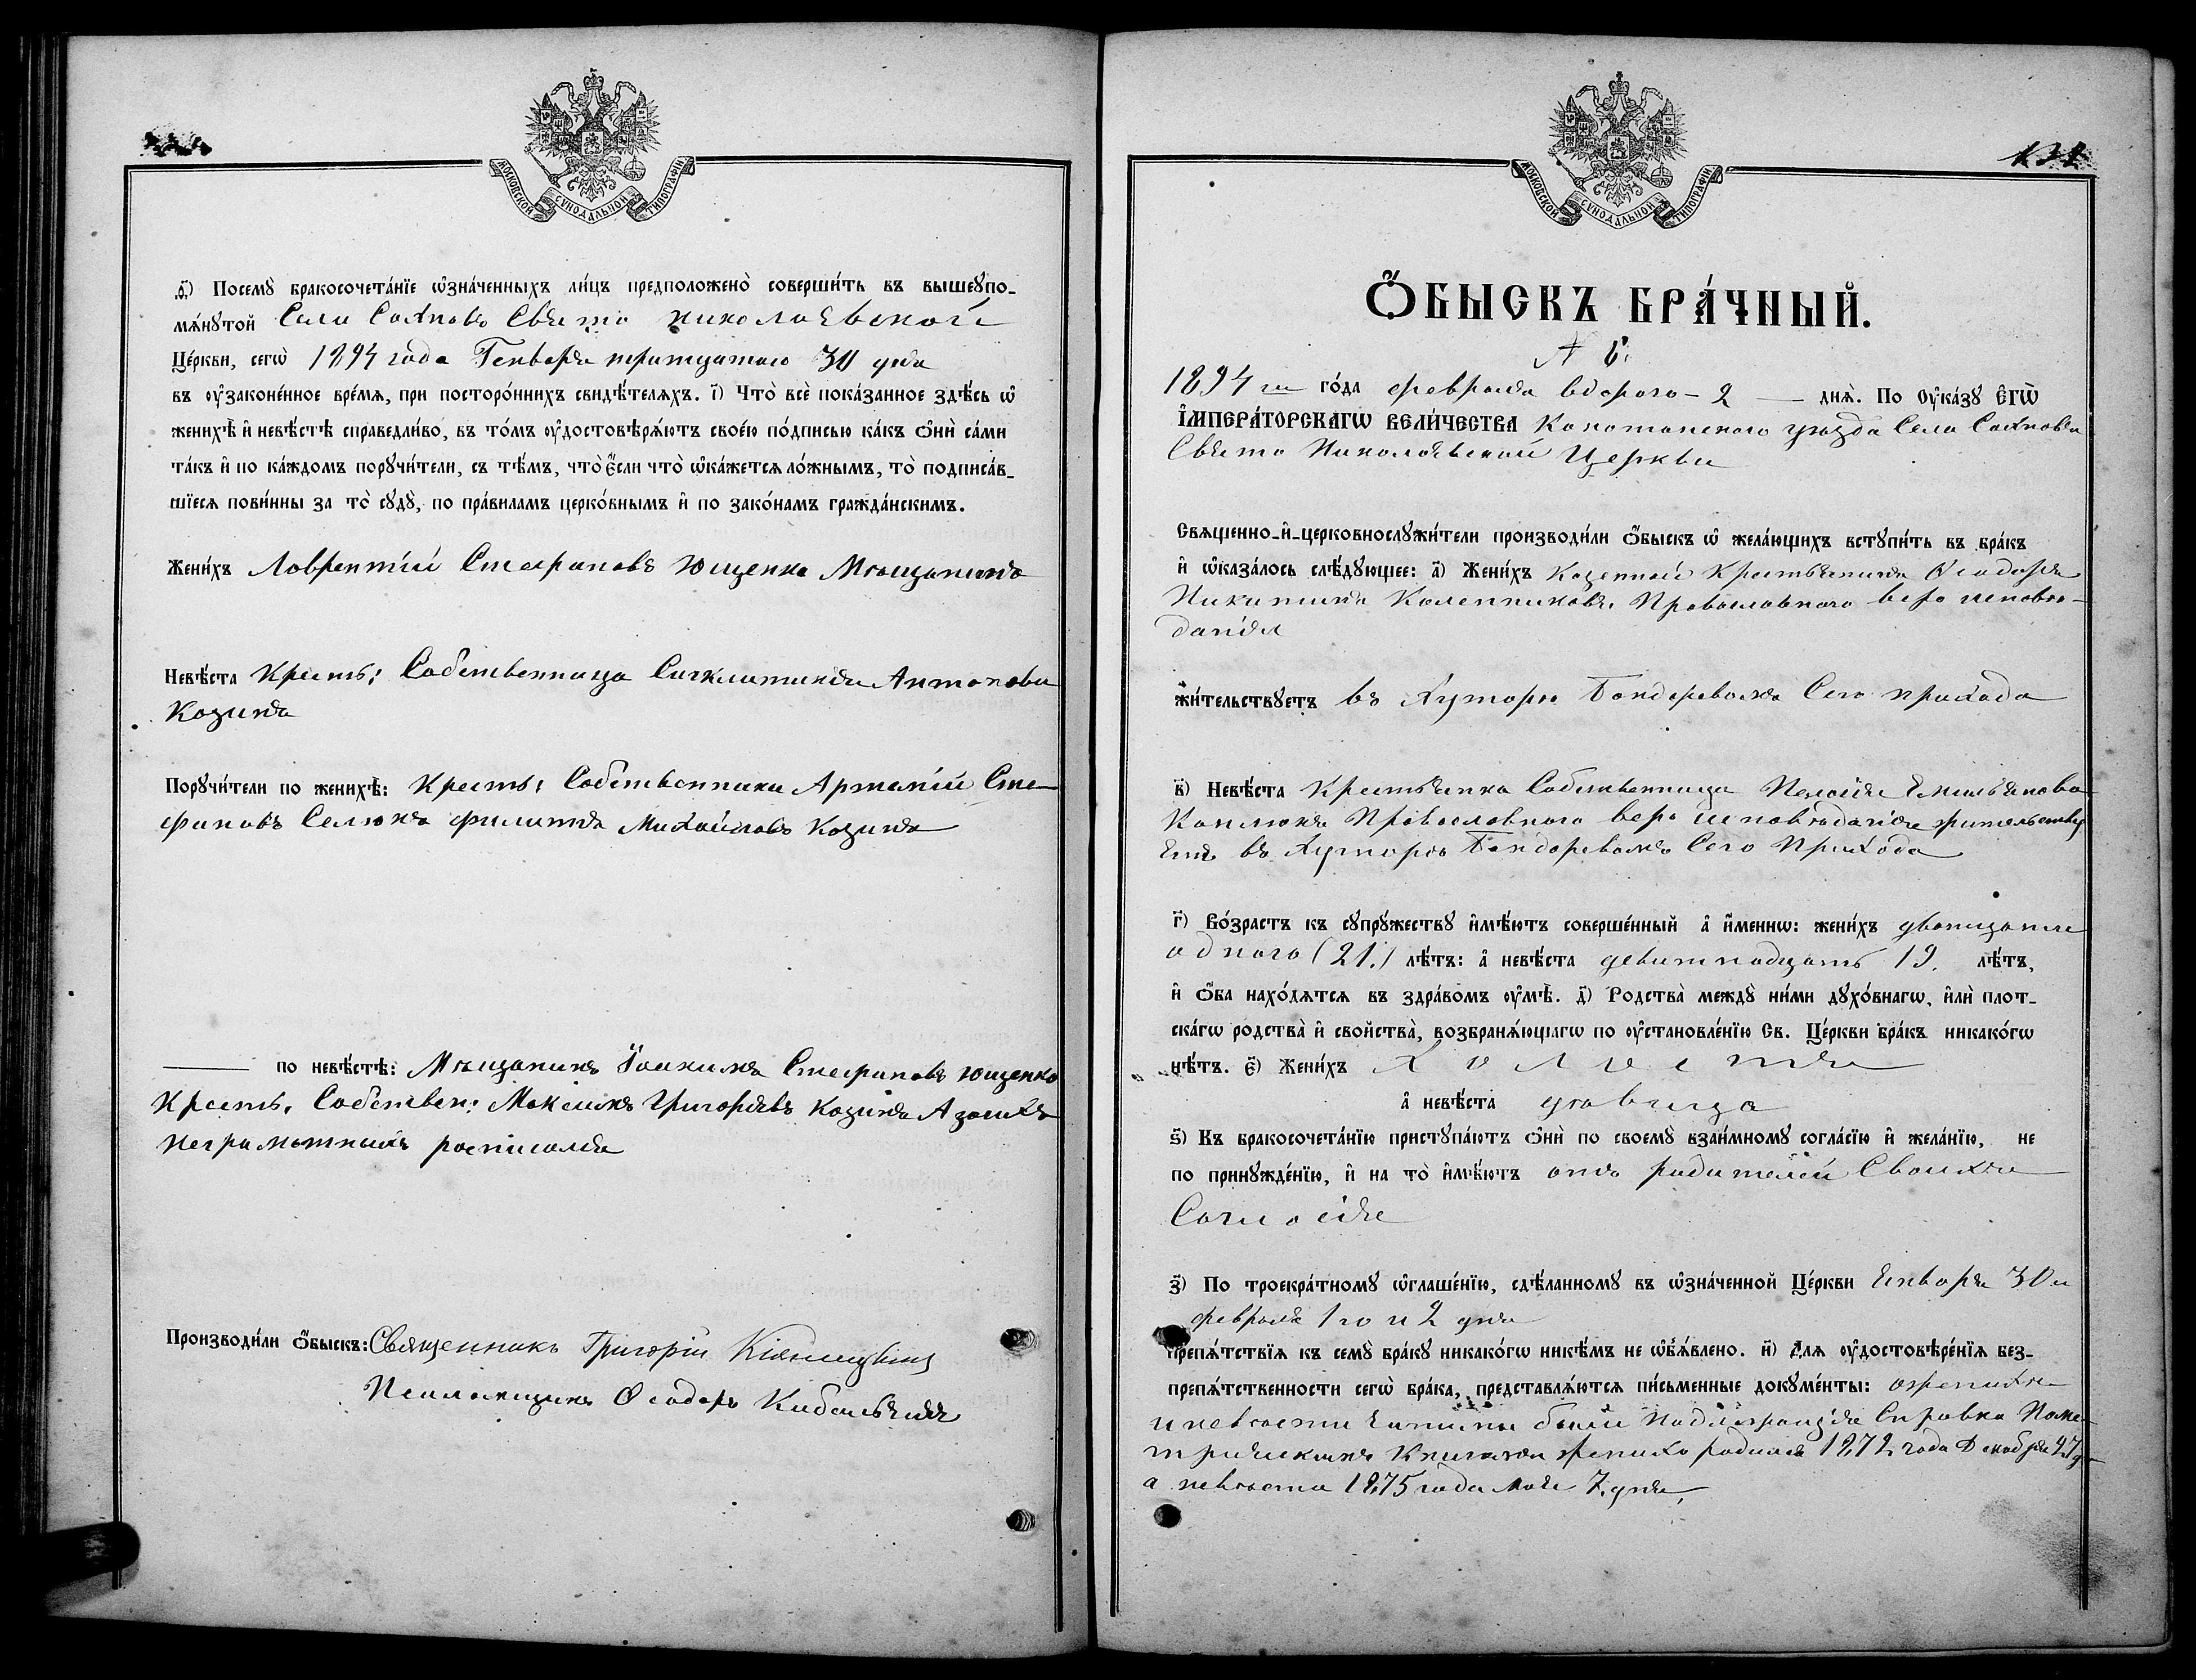 МОСКОВСКОЙ СѴНОДАЛЬНОЙ ТИПОГРАФІИ
д҃і) Посемꙋ̀ бракосочета́нїе ѡ҆зна́ченныхъ ли́цъ предположено̀ соверши́ть въ вышеꙋпо-
мѧ́нꙋтой Села Сахновъ Свято николаевской
Це́ркви, сегѡ̀ 1894 года Генваря тритцатого 30 дня
въ ᲂу҆законе́нное вре́мѧ, при посторо́ннихъ свидѣ́телѧхъ. і҃) Что̀ всѐ пока́занное здѣ́сь ѡ҆
женихѣ̀ и҆ невѣ́стѣ справедли́во, въ то́мъ ᲂу҆достовѣрѧ́ютъ свое́ю по́дписью ка́къ ѻ҆нѝ са́ми
та́къ и҆ по ка́ждомъ порꙋчи́тели, съ тѣ́мъ, что̀ є҆́сли что̀ ѡ҆ка́жетсѧ ло́жнымъ, то̀ подписа́в-
шїесѧ пови́нны за то̀ сꙋдꙋ̀, по пра́виламъ церко́внымъ и҆ по зако́намъ гражда́нскимъ.
Жени́хъ Лаврентій Стефановъ Ющенко Мѣщанинъ
Невѣ́ста Крест: Собственница Сигклитикія Антонова
Козинъ
Порꙋчи́тели по женихѣ̀: Крест: Собственники Артемій Сте-
фановъ Селюкъ Филиппъ Михайловъ Козинъ
по невѣ́стѣ: Мѣщанинъ Іоакимъ Стефановъ Ющенко
Крест. Собствен: Максимъ Григорьевъ Козинъ А за ихъ
неграмотныхъ росписался
Производи́ли ѻ҆́быскъ: Священникъ Григорій
Псаломщикъ Ѳеодоръ
МОСКОВСКОЙ СѴНОДАЛЬНОЙ ТИПОГРАФІИ
Ѻ҆́БЫСКЪ БРА́ЧНЫЙ.
№ 6.
1894 го го́да февраля второго - 2 — днѧ̀. По ᲂу҆ка́зꙋ Є҆ГѠ̀
І҆МПЕРА́ТОРСКАГѠ ВЕЛИ́ЧЕСТВА Конотопского уѣзда Села Сахновки
Свято Николаевской Церкви
Свѧщенно-и҆-церковнослꙋжи́тели производи́ли ѻ҆́быскъ ѡ҆ жела́ющихъ встꙋпи́ть въ бра́къ
и҆ ѡ҆каза́лось слѣ́дꙋющее: а҃) Жени́хъ Казенный Крестьянинъ Ѳеодоръ
Никитинъ Православного веро исповѣ-
данія
жи́тельствꙋетъ въ Хуторѣ Бондаревомъ Сего прихода
в҃) Невѣ́ста Крестьянка Собственница Пелагія Емильянова
Православного веро исповѣданія жительству
етъ въ Хуторѣ Бондаревомъ Сего Прихода
г҃) Во́зрастъ къ сꙋпрꙋ́жествꙋ и҆мѣ́ютъ соверше́нный а҆ и҆́меннѡ: жени́хъ дватцати
одного (21.) лѣ́тъ: а҆ невѣ́ста девятнадцать 19. лѣ́тъ,
и҆ ѻ҆́ба нахо́дѧтсѧ въ здра́вомъ ᲂу҆мѣ̀. д҃) Родства̀ междꙋ̀ ни́ми дꙋхо́внагѡ, и҆лѝ плот-
ска́гѡ родства̀ и҆ свойства̀, возбранѧ́ющагѡ по ᲂу҆становле́нїю Св. Це́ркви бра́къ никако́гѡ
нѣ́тъ. є҃) Жени́хъ Холостъ
а҆ невѣ́ста дѣвица
ѕ҃) Къ бракосочета́нїю пристꙋпа́ютъ ѻ҆нѝ по своемꙋ̀ взаи́мномꙋ согла́сїю и҆ жела́нїю, не
по принꙋжде́нїю, и҆ на то̀ и҆мѣ́ютъ отъ родителей Своихъ
Согласіе
з҃) По троекра́тномꙋ ѡ҆глаше́нїю, сдѣ́ланномꙋ въ ѡ҆зна́ченной Це́ркви Января 30 и
февраля 1 го и 2 дня
препѧ́тствїѧ къ семꙋ̀ бра́кꙋ никако́гѡ никѣ́мъ не ѡ҆б̾ѧ́влено. и҃) Длѧ ᲂу҆достовѣре́нїѧ без-
препѧ́тственности сегѡ̀ бра́ка, представлѧ́ютсѧ пи́сьменные докꙋме́нты: о женихе
и невѣсте Справка По ме-
трическимъ Книгамъ Жених родился 1872 года Декабря 27 д
а невѣста 1875 года мая 7. дня,